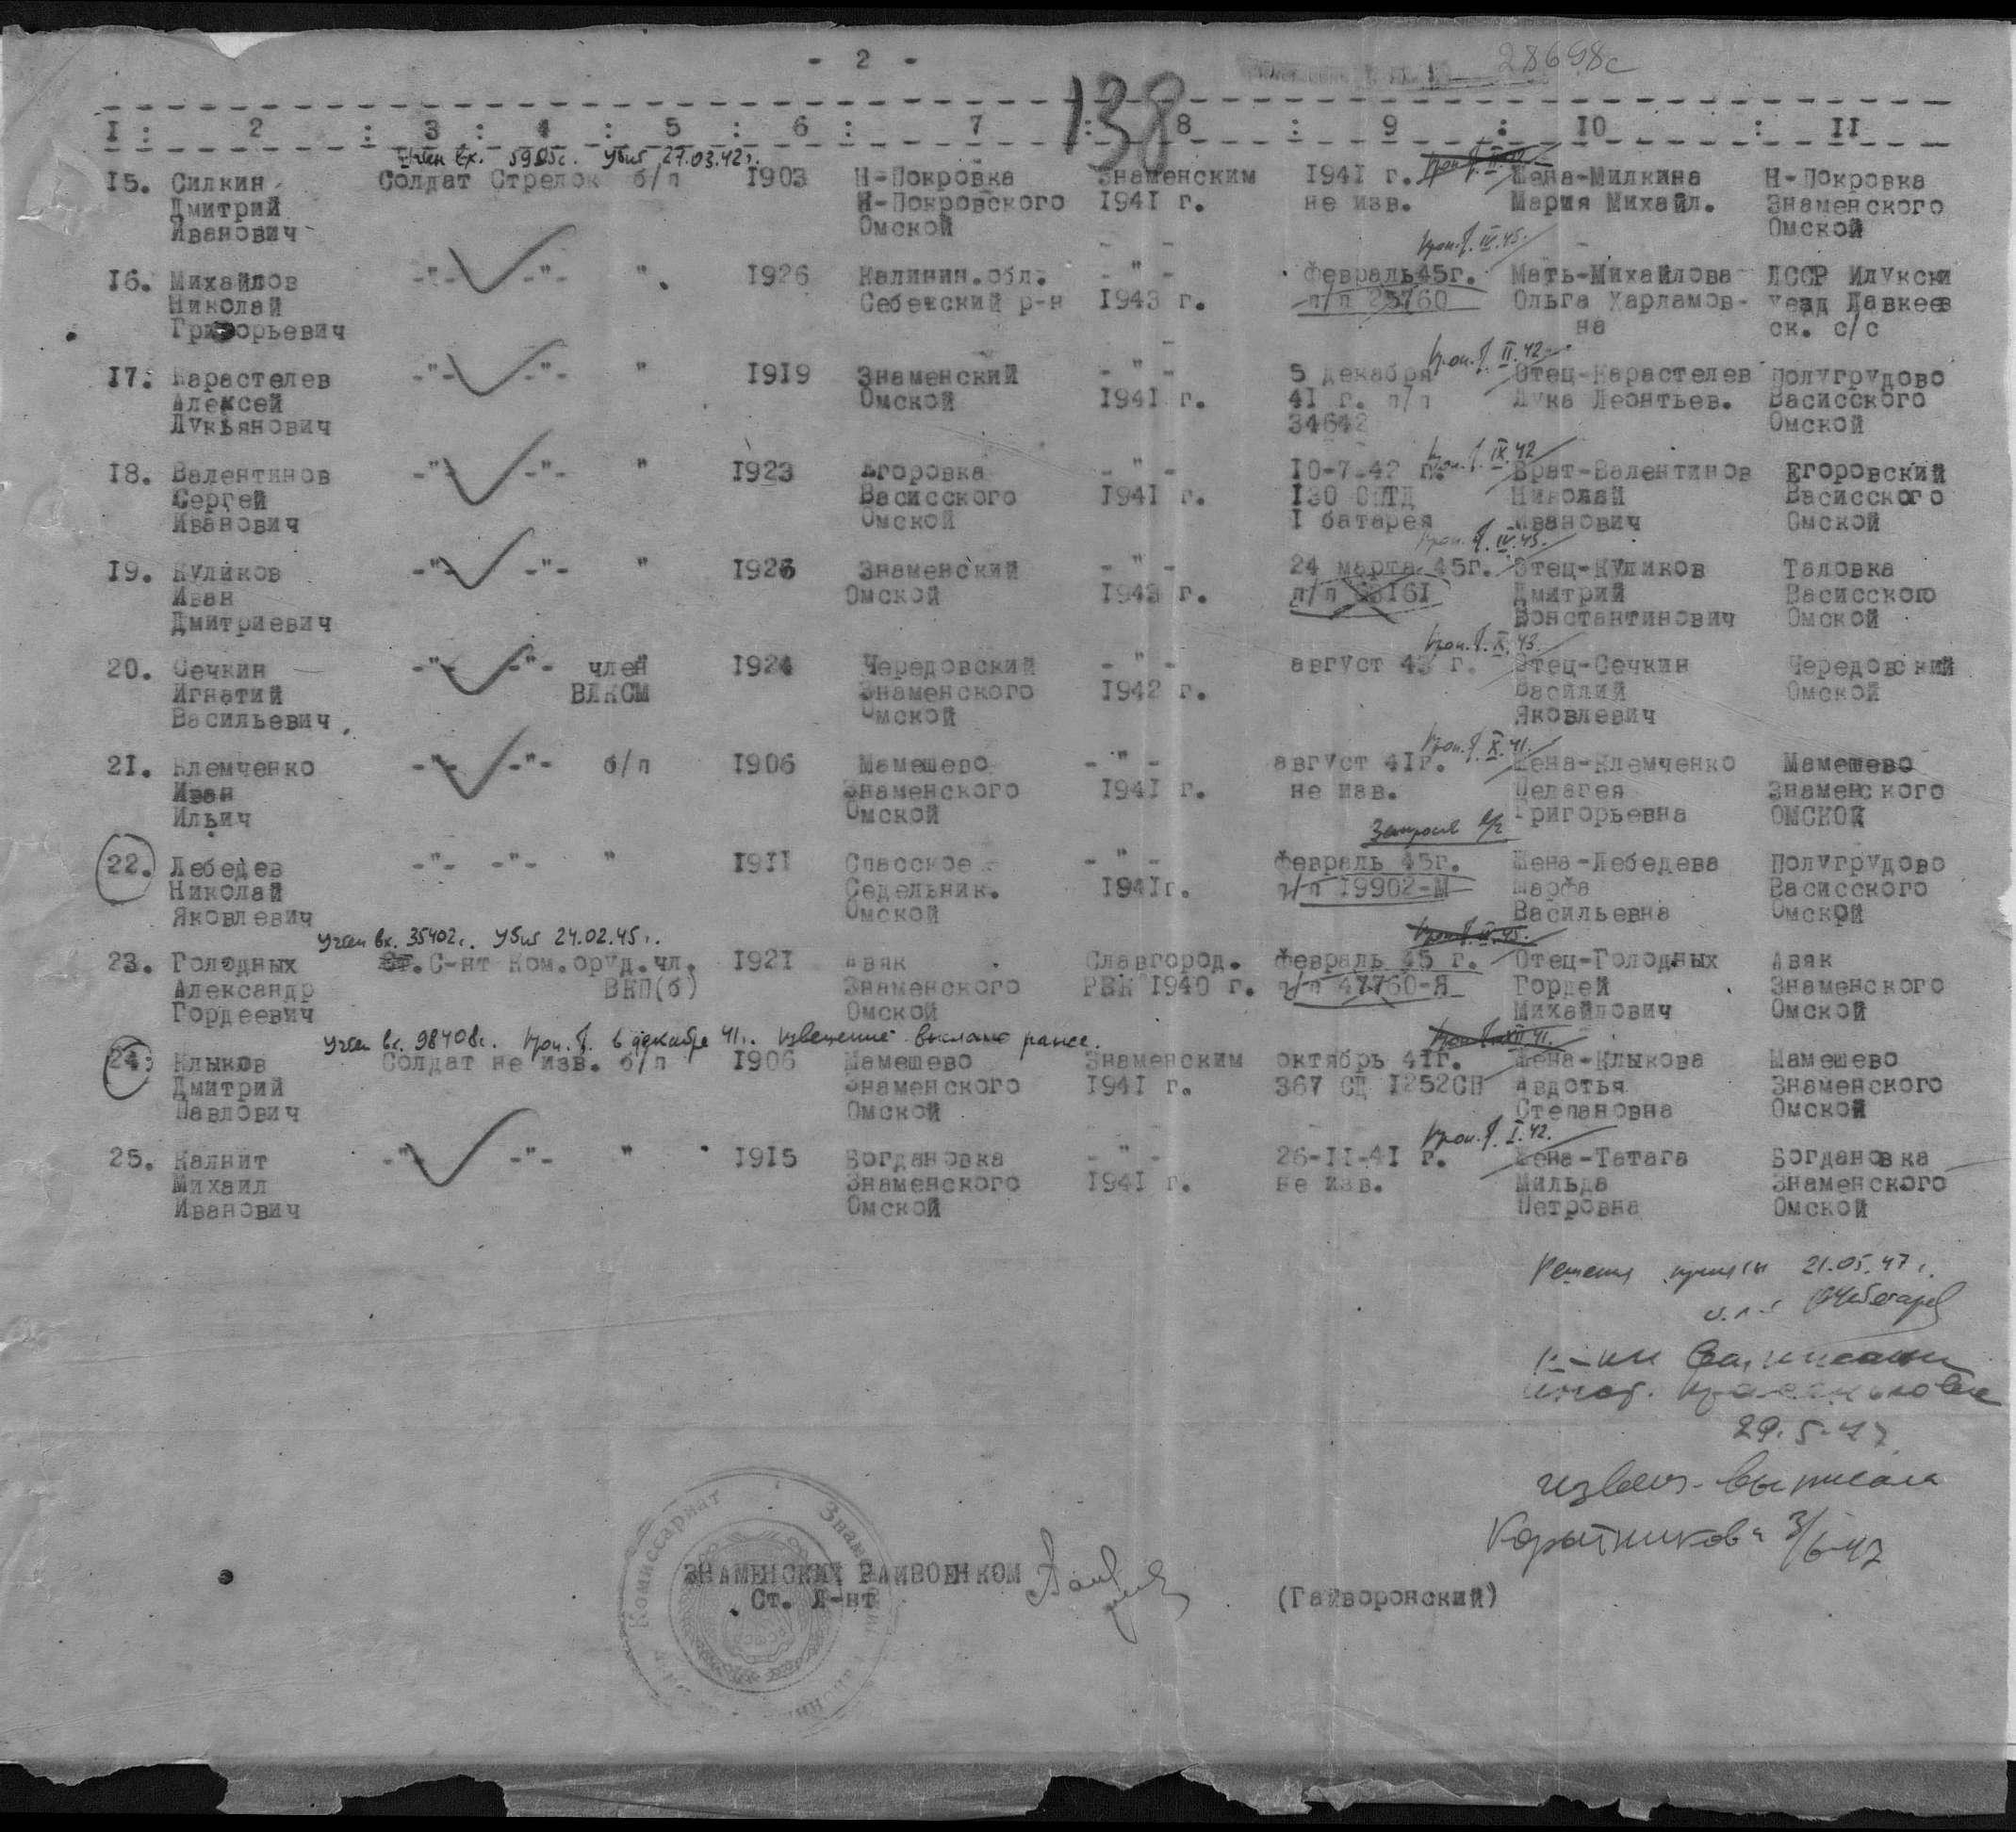 - 2 -
28698с
138
I : 2 : 3 : 4 : 5 : 6 : 7 : 8 : 9 : 10 : II
Учтен вх. 5905с. Убит 27.03.42г.
15. Силкин Солдат Стрелок б/п 1903 Н-Покровка Знаменским 1941 г. Жена-Милкина Н-Покровка
Дмитрий Н-Покровского 1941 г. не изв. Мария Михайл. Знаменского
Иванович Омской Омской
Проп.б. IV.45.
16. Михайлов -"- -"- " 1926 Калинин.обл. - " - февраль45г. Мать-Михайлова ЛССР Илукски
Николай Себежский р-н 1943 г. п/п 25760 Ольга Харламов- уезд Давкеев
Григорьевич на ск. с/с
Проп.б. II.42
17. Карастелев -"- -"- " 1919 Знаменский - " - 5 декабря Отец-Карастелев Полугрудово
Алексей Омской 1941 г. 41 г. п/п Лука Леонтьев. Васисского
Лукьянович 34642 Омской
Проп.б. IX.42
18. Валентинов -"- -"- " 1923 Егоровка - " - 10-7-42 г. Брат-Валентинов Егоровский
Сергей Васисского 1941 г. 130 ОПТД Николай Васисского
Иванович Омской 1 батарея Иванович Омской
Проп.б. IV.45.
19. Куликов -"- -"- " 1926 Знаменский - " - 24 марта 45г. Отец-Куликов Таловка
Иван Омской 1943 г. п/п Дмитрий Васисского
Дмитриевич Константинович Омской
Проп.б. X.43
20. Сечкин -"- -"- член 1924 Чередовский - " - август 43 г. Отец-Сечкин Чередовский
Игнатий ВЛКСМ Знаменского 1942 г. Василий Омской
Васильевич Омской Яковлевич
Проп.б. X.41.
21. Клемченко -"- -"- б/п 1906 Мамешево - " - август 41г. Жена-Клемченко Мамешево
Иван Знаменского 1941 г. не изв. Пелагея Знаменского
Ильич Омской Григорьевна ОМСКОЙ
22. Лебедев -"- -"- " 1911 Спасское - " - февраль 45г. Жена-Лебедева Полугрудово
Николай Седельник. 1941г. п/п 19902-М Марфа Васисского
Яковлевич Омской Васильевна Омской
Учтен вх. 35402с. Убит 24.02.45г.
23. Голодных Ст.С-нт Ком.оруд.чл. 1921 Авяк Славгород. февраль 45 г. Отец-Голодных Авяк
Александр ВКП(б) Знаменского РВК 1940 г. п/п 47760-Я Гордей Знаменского
Гордеевич Омской Михайлович Омской
Учтен вх. 98408с. Проп.б. в декабре 41г. извещение выслано ранее.
24. Клыков Солдат не изв. б/п 1906 Мамешево Знаменским октябрь 41г. Жена-Клыкова Мамешево
Дмитрий Знаменского 1941 г. 367 СД 1252СП Авдотья Знаменского
Павлович Омской Степановна Омской
Проп.б. I.42.
25. Калнит -"- -"- " 1915 Богдановка - " - 26-11-41 г. Жена-Татага Богдановка
Михаил Знаменского 1941 г. не изв. Мильда Знаменского
Иванович Омской Петровна Омской
21.05.47г.
29.5.47
извещ. выписала
Корытникова 3/6-47
Комиссариат
ЗНАМЕНСКИЙ РАЙВОЕНКОМ
Ст. Л-нт (Гайворонский)